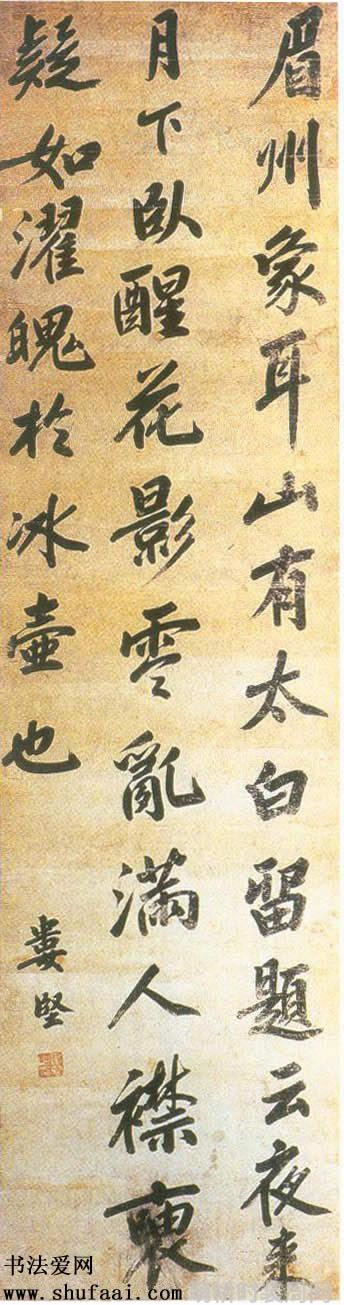 眉州象耳山有太白留題云夜來
月下臥醒花影零亂滿人襟裒
疑如濯魄於冰壺也
婁堅
书法爱网
www.shufaai.com